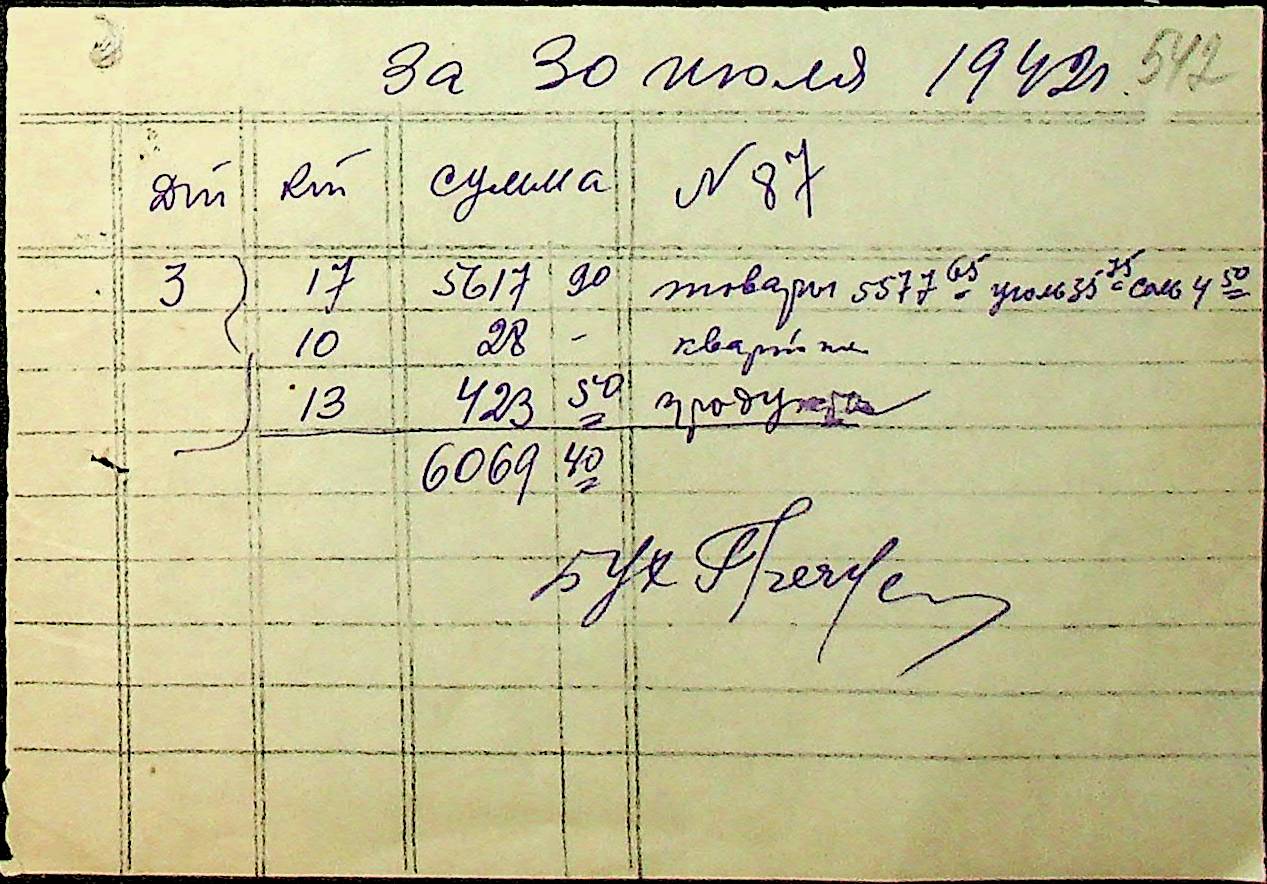 За 30 июля 1942г. 542
Дт Кт сумма N 87
3 17 5617 90 товары 5577 65 уголь 35 75 соль 4 50
10 28 - квартпл
13 423 50 продукта
6069 40
Бух